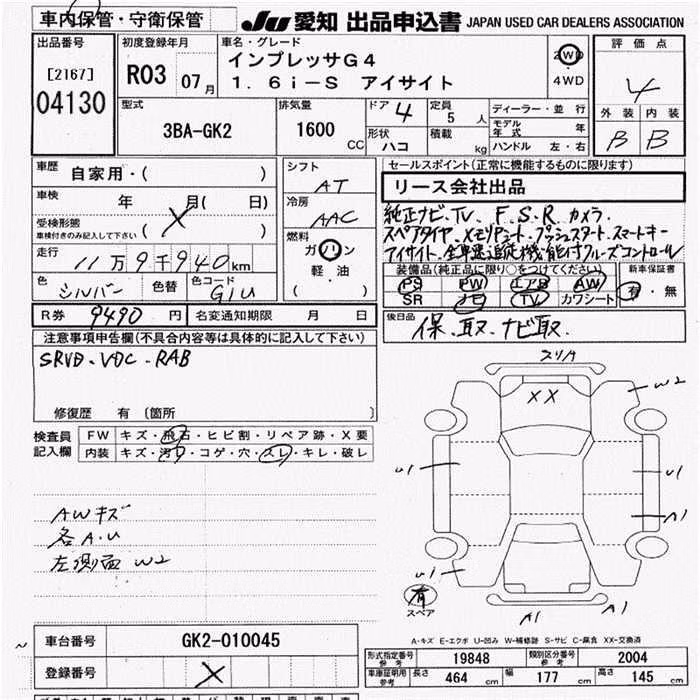 車内保管・守衛保管
JU 愛知 出品申込書 JAPAN USED CAR DEALERS ASSOCIATION
出品番号
[2167]
04130
初度登録年月
R03 07月
車名・グレード
インプレッサG4
1.6i-S アイサイト
2WD
4WD
評価点
4
外装 内装
B B
型式
3BA-GK2
排気量
1600 CC
ドア 4
形状 ハコ
定員 5 人
積載 kg
ディーラー・並行
モデル年式 年
ハンドル 左・右
車歴 自家用・( )
車検 年 月( 日)
受検形態
車検付きのみ記入して下さい ( X )
走行 11万9千940km
色 シルバー 色替 色コード G1U
シフト AT
冷房 AAC
燃料
ガソリン
軽油
( )
セールスポイント(正常に機能するものに限ります)
リース会社出品
純正ナビ.TV. F.S.R カメラ
スペアタイヤ.メモリキュート.プッシュスタート.スマートキー
アイサイト.全車速追従機能付クルーズコントロール
装備品(純正品に限り○をつけてください)
PS PW エアB AW
SR ナビ TV カワシート
新車保証書
有・無
R券 9490 円 名変通知期限 月 日
後日品
保.取.ナビ取.
注意事項申告欄(不具合内容等は具体的に記入して下さい)
SRVD.VDC.RAB
修復歴 有 〔箇所 〕
検査員記入欄
FW キズ・飛石・ヒビ割・リペア跡・X要
内装 キズ・汚れ・コゲ・穴・スレ・キレ・破レ
AWキズ
各A.U
左側面 W2
スリキ
XX
W2
U1
U1
A1
U1
A1
A1
有
スペア
A-キズ E-エクボ U-凹み W-補修跡 S-サビ C-腐食 XX-交換済
車台番号 GK2-010045
登録番号 X
形式指定番号 参考 19848 類別区分番号 参考 2004
車庫証明用 参考 長さ 464 cm 幅 177 cm 高さ 145 cm